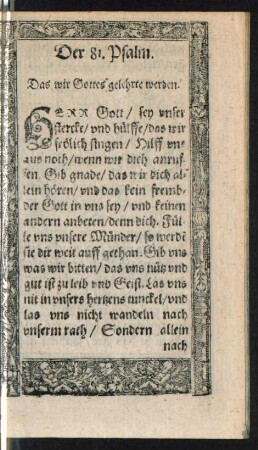 Der 81. Psalm.
Das wir Gottes gelehrte werden.
HERR Gott / sey vnser
stercke / vnd hülffe / das wir
frölich singen / Hilff vns
aus noth / wenn wir dich anruf-
fen. Gib gnade / das wir dich al-
lein hören / vnd das kein fremb-
der Gott in vns sey / vnd keinen
andern anbeten / denn dich. Fül-
le vns vnsere Münder / so werdē
sie dir weit auff gethan. Gib vns
was wir bitten / das vns nütz vnd
gut ist zu leib vnd Geist. Las vns
nit in vnsers hertzens tunckel / vnd
las vns nicht wandeln nach
vnserm rath / Sondern allein
nach